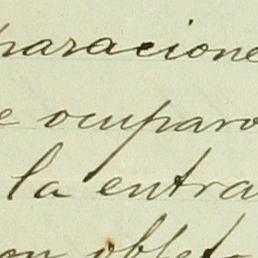 paracione
e ocuparo
la entra
on objet